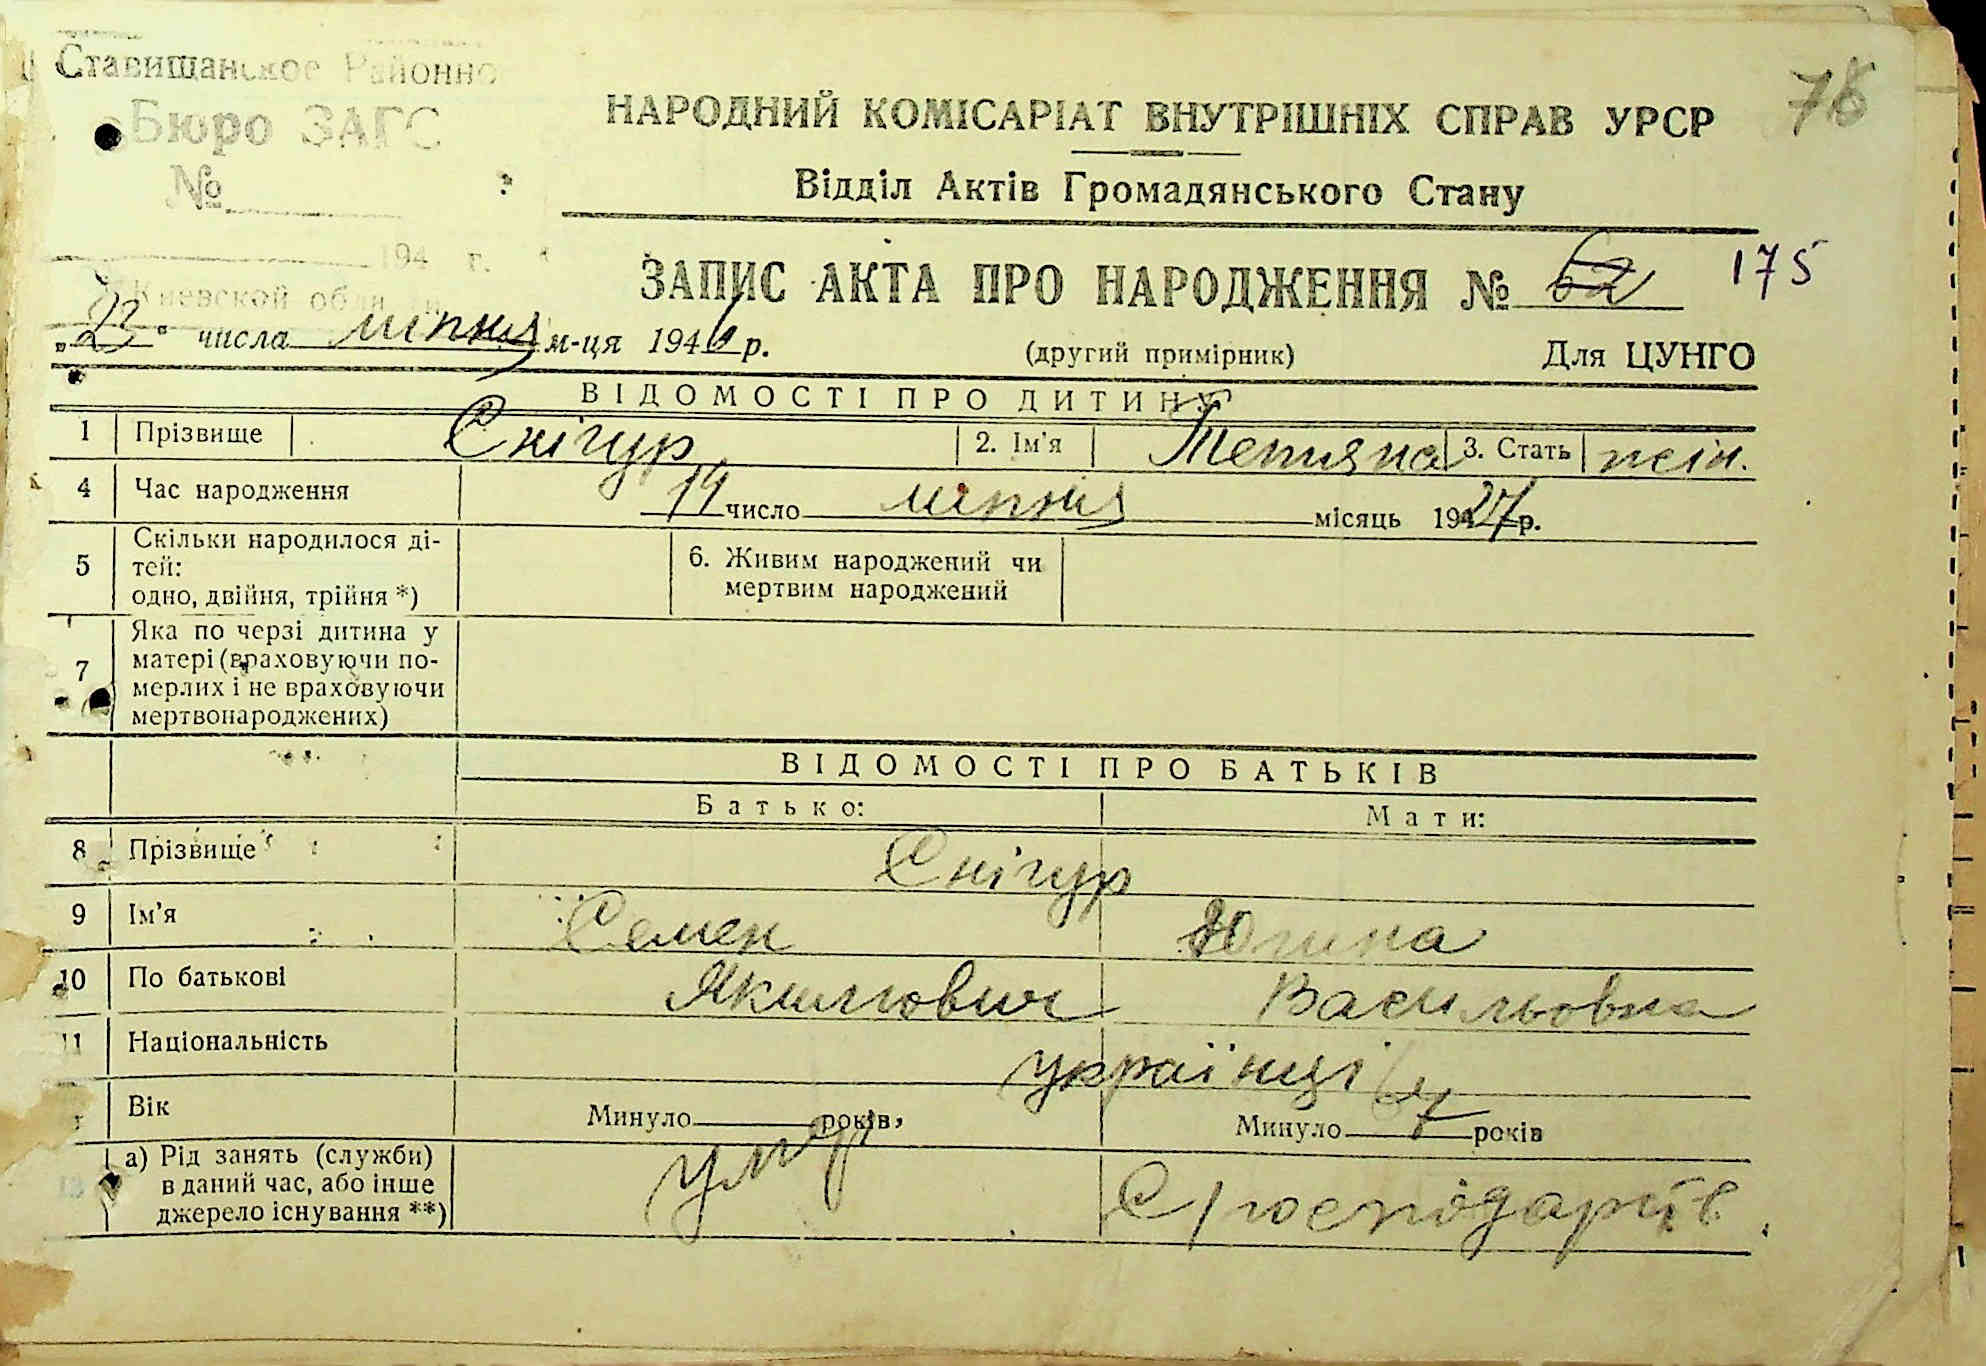 Ставищанское Районно
Бюро ЗАГС
№
194 г.
Киевской обл
78
НАРОДНИЙ КОМІСАРІАТ ВНУТРІШНІХ СПРАВ УРСР
Відділ Актів Громадянського Стану
ЗАПИС АКТА ПРО НАРОДЖЕННЯ № 62 175
„23" числа липня м-ця 194 р.
(другий примірник) Для ЦУНГО
ВІДОМОСТІ ПРО ДИТИНУ
1 Прізвище Снігур 2. Ім'я Тетяна 3. Стать жін.
4 Час народження 14 число липня місяць 1927 р.
5 Скільки народилося ді-
тей:
одно, двійня, трійня *)
6. Живим народжений чи
мертвим народжений
7 Яка по черзі дитина у
матері (враховуючи по-
мерлих і не враховуючи
мертвонароджених)
ВІДОМОСТІ ПРО БАТЬКІВ
Батько: Мати:
8 Прізвище Снігур
9 Ім'я Семен
10 По батькові Якимович Васильовна
11 Національність українці
Вік Минуло років, Минуло 47 років
13 а) Рід занять (служби)
в даний час, або інше
джерело існування **)
умер С/господарств.